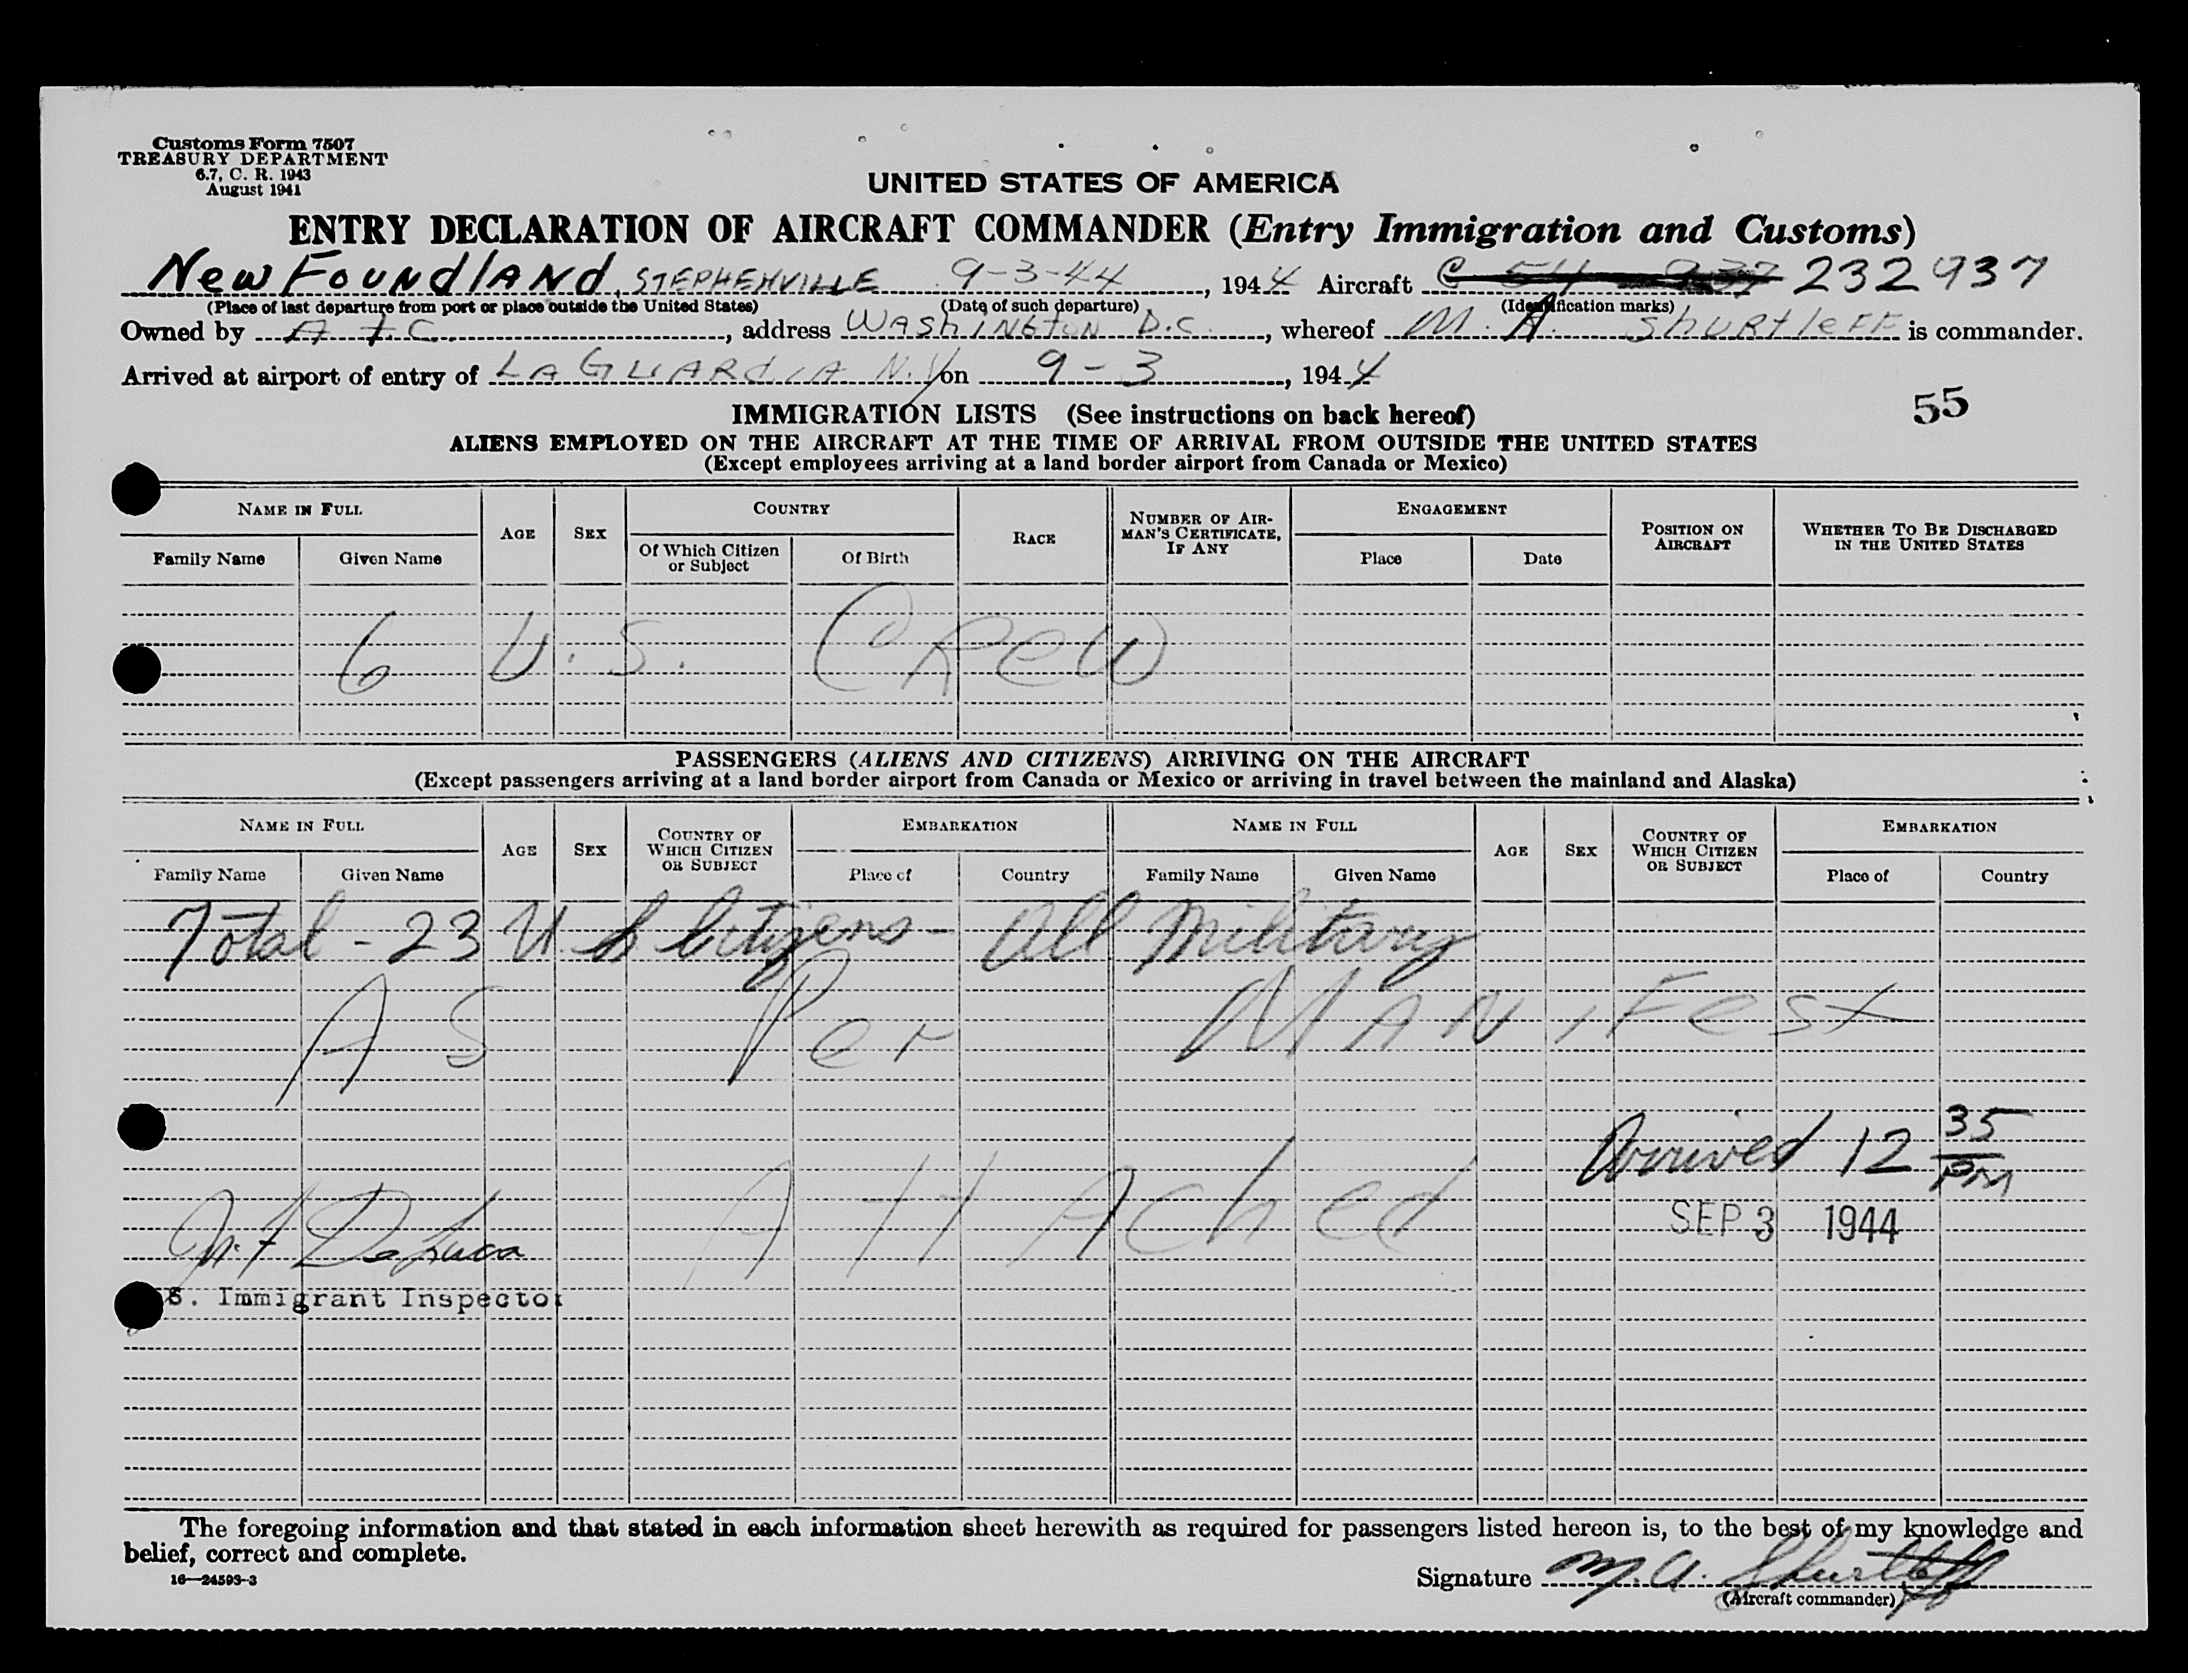 Customs Form 7507
TREASURY DEPARTMENT
6.7, C. R. 1943
August 1941
UNITED STATES OF AMERICA
ENTRY DECLARATION OF AIRCRAFT COMMANDER (Entry Immigration and Customs)
NewFoundlANd, STEPHENVILLE 9-3-44, 1944 Aircraft C 54 937 232937
(Place of last departure from port or place outside the United States) (Date of such departure) (Identification marks)
Owned by A T C, address WAShINGTON D.C., whereof M. A. ShURtleFF is commander.
Arrived at airport of entry of LA GUARdIA N.Y on 9-3, 1944
55
IMMIGRATION LISTS (See instructions on back hereof)
ALIENS EMPLOYED ON THE AIRCRAFT AT THE TIME OF ARRIVAL FROM OUTSIDE THE UNITED STATES
(Except employees arriving at a land border airport from Canada or Mexico)
NAME IN FULL AGE SEX COUNTRY RACE NUMBER OF AIRMAN'S CERTIFICATE, IF ANY ENGAGEMENT POSITION ON AIRCRAFT WHETHER TO BE DISCHARGED IN THE UNITED STATES
Family Name Given Name Of Which Citizen or Subject Of Birth Place Date
6 U.S. CReW
PASSENGERS (ALIENS AND CITIZENS) ARRIVING ON THE AIRCRAFT
(Except passengers arriving at a land border airport from Canada or Mexico or arriving in travel between the mainland and Alaska)
NAME IN FULL AGE SEX COUNTRY OF WHICH CITIZEN OR SUBJECT EMBARKATION NAME IN FULL AGE SEX COUNTRY OF WHICH CITIZEN OR SUBJECT EMBARKATION
Family Name Given Name Place of Country Family Name Given Name Place of Country
Total - 23 U S Citizens - All Military
AS Per MANiFest
Arrived 12 35 PM
AttAched
SEP 3 1944
DeLuca
S. Immigrant Inspector
The foregoing information and that stated in each information sheet herewith as required for passengers listed hereon is, to the best of my knowledge and
belief, correct and complete.
16—24593-3
Signature M. A. Shurtleff
(Aircraft commander)